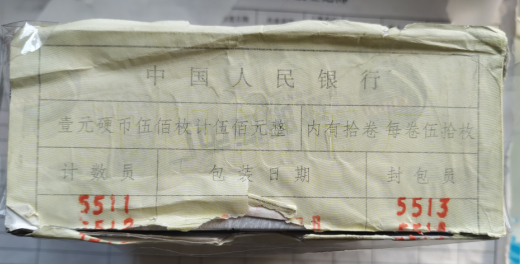 中国人民银行
壹元硬币伍佰枚计伍佰元整 内有拾卷每卷伍拾枚
计数员 包装日期 封包员
5511 5513